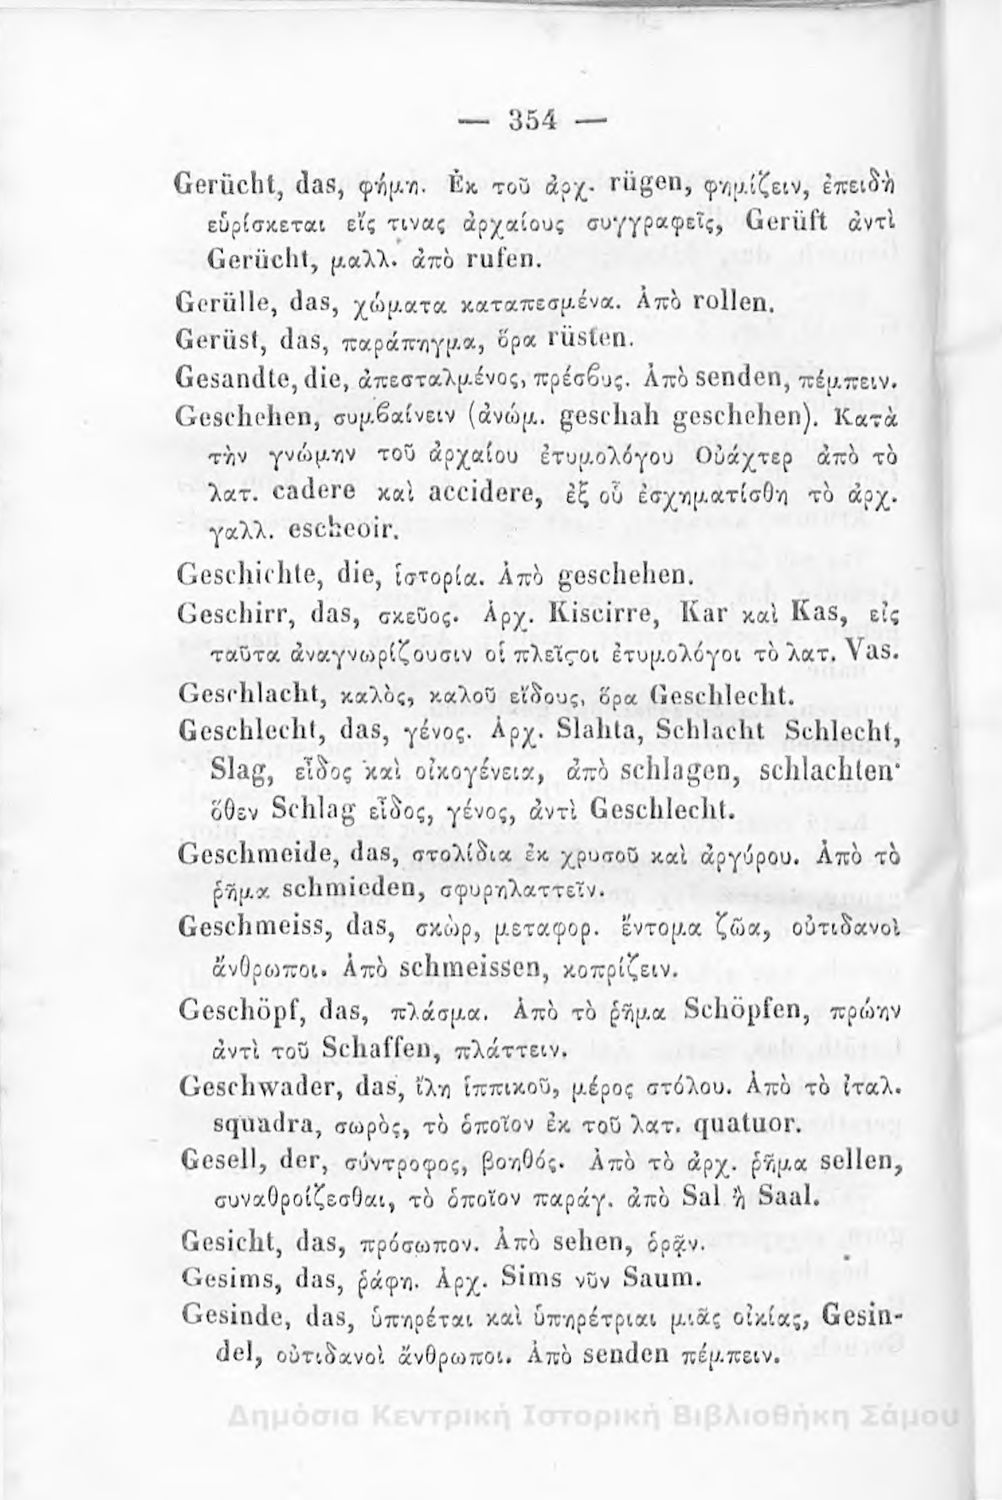 — 354 —
Gerücht, das, φήμη. Ἐκ τοῦ ἀρχ. rügen, φημίζειν, ἐπειδὴ
εὑρίσκεται εἴς τινας ἀρχαίους συγγραφεῖς, Gerüft ἀντὶ
Gerücht, μαλλ. ἀπὸ rufen.
Gerülle, das, χώματα καταπεσμένα. Ἀπὸ rollen.
Gerüst, das, παράπηγμα, ὅρα rüsten.
Gesandte, die, ἀπεσταλμένος, πρέσϐυς. Ἀπὸ senden, πέμπειν.
Geschehen, συμϐαίνειν (ἀνώμ. geschah geschehen). Κατὰ
τὴν γνώμην τοῦ ἀρχαίου ἐτυμολόγου Οὐάχτερ ἀπὸ τὸ
λατ. cadere καὶ accidere, ἐξ οὗ ἐσχηματίσθη τὸ ἀρχ.
γαλλ. escheoir.
Geschichte, die, ἱστορία. Ἀπὸ geschehen.
Geschirr, das, σκεῦος. Ἀρχ. Kiscirre, Kar καὶ Kas, εἰς
ταῦτα ἀναγνωρίζουσιν οἱ πλεῖςοι ἐτυμολόγοι τὸ λατ. Vas.
Geschlacht, καλὸς, καλοῦ εἴδους, ὅρα Geschlecht.
Geschlecht, das, γένος. Ἀρχ. Slahta, Schlacht Schlecht,
Slag, εἶδος καὶ οἰκογένεια, ἀπὸ schlagen, schlachten·
ὅθεν Schlag εἶδος, γένος, ἀντὶ Geschlecht.
Geschmeide, das, στολίδια ἐκ χρυσοῦ καὶ ἀργύρου. Ἀπὸ τὸ
ῥῆμα schmieden, σφυρηλαττεῖν.
Geschmeiss, das, σκὼρ, μεταφορ. ἔντομα ζῶα, οὐτιδανοὶ
ἄνθρωποι. Ἀπὸ schmeissen, κοπρίζειν.
Geschöpf, das, πλάσμα. Ἀπὸ τὸ ῥῆμα Schöpfen, πρώην
ἀντὶ τοῦ Schaffen, πλάττειν.
Geschwader, das, ἴλη ἱππικοῦ, μέρος στόλου. Ἀπὸ τὸ ἰταλ.
squadra, σωρὸς, τὸ ὁποῖον ἐκ τοῦ λατ. quatuor.
Gesell, der, σύντροφος, βοηθός. Ἀπὸ τὸ ἀρχ. ῥῆμα sellen,
συναθροίζεσθαι, τὸ ὁποῖον παράγ. ἀπὸ Sal ἢ Saal.
Gesicht, das, πρόσωπον. Ἀπὸ sehen, ὁρᾷν.
Gesims, das, ῥάφη. Ἀρχ. Sims νῦν Saum.
Gesinde, das, ὑπηρέται καὶ ὑπηρέτριαι μιᾶς οἰκίας, Gesin-
del, οὐτιδανοὶ ἄνθρωποι. Ἀπὸ senden πέμπειν.
Δημόσια Κεντρική Ιστορική Βιβλιοθήκη Σάμου